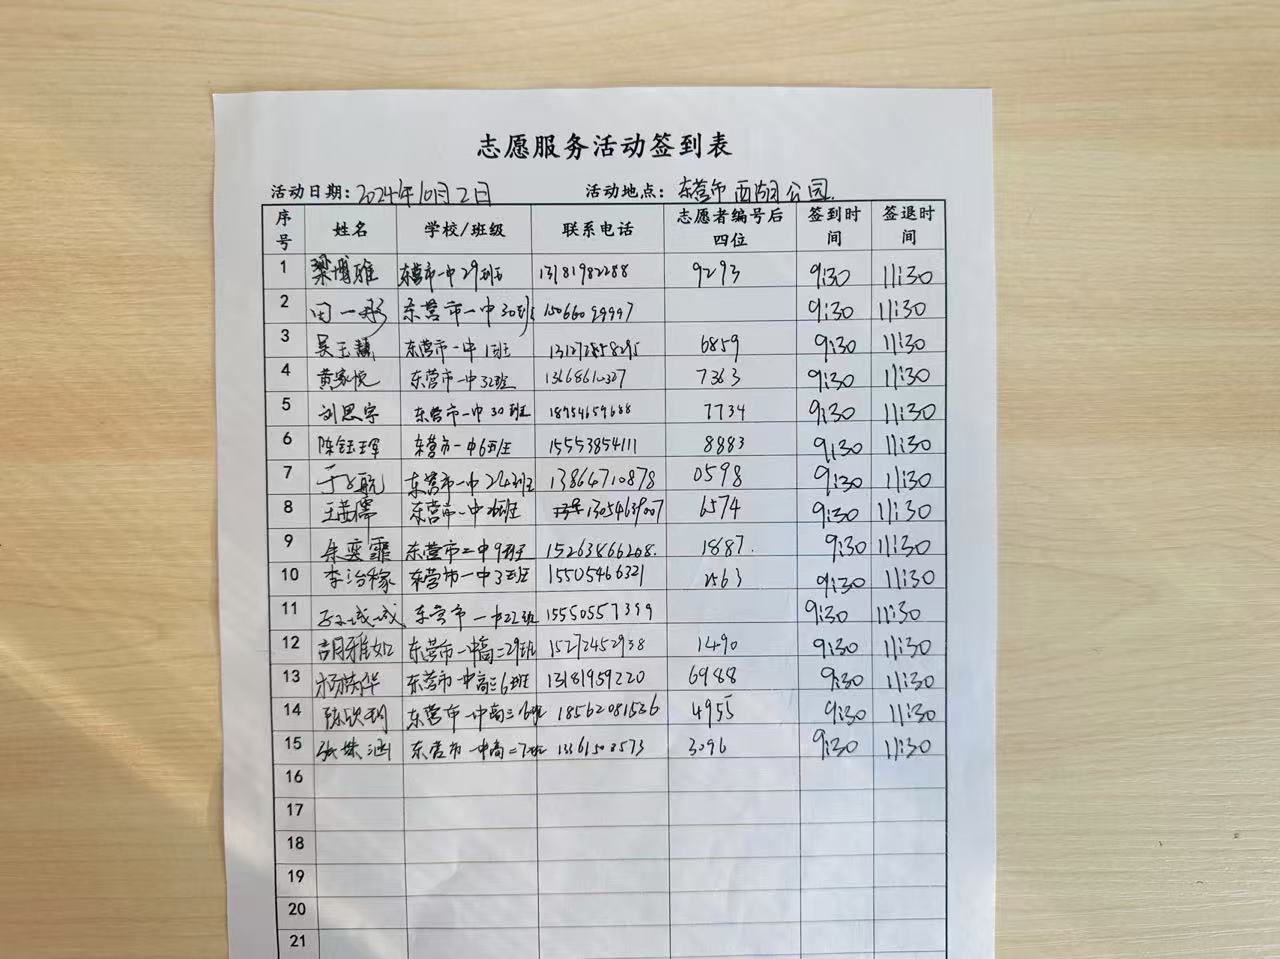 志愿服务活动签到表
活动日期：2024年10月2日 活动地点：东营市西湖公园
序号 姓名 学校/班级 联系电话 志愿者编号后四位 签到时间 签退时间
1 梁博雅 东营市一中29班 13181982288 9293 9:30 11:30
2 田一彤 东营市一中30班 9:30 11:30
3 吴玉慧 东营市一中1班 6859 9:30 11:30
4 黄家悦 东营市一中32班 7363 9:30 11:30
5 刘思宇 东营市一中30班 18954659688 7734 9:30 11:30
6 陈钰珲 东营市一中6班 15553854111 8883 9:30 11:30
7 于子航 东营市一中24班 13864710878 0598 9:30 11:30
8 东营市一中 13054639007 6574 9:30 11:30
9 朱奕霏 东营市二中9班 15263866208. 1887. 9:30 11:30
10 李治稼 东营市一中3班 15505466321 9:30 11:30
11 东营市一中22班 15550557399 9:30 11:30
12 胡雅如 东营市一中高二29班 15272452938 1490 9:30 11:30
13 东营市一中高三6班 13181959220 6988 9:30 11:30
14 东营市一中高三6班 18562081536 4955 9:30 11:30
15 张姝涵 东营市一中高二7班 3096 9:30 11:30
16
17
18
19
20
21